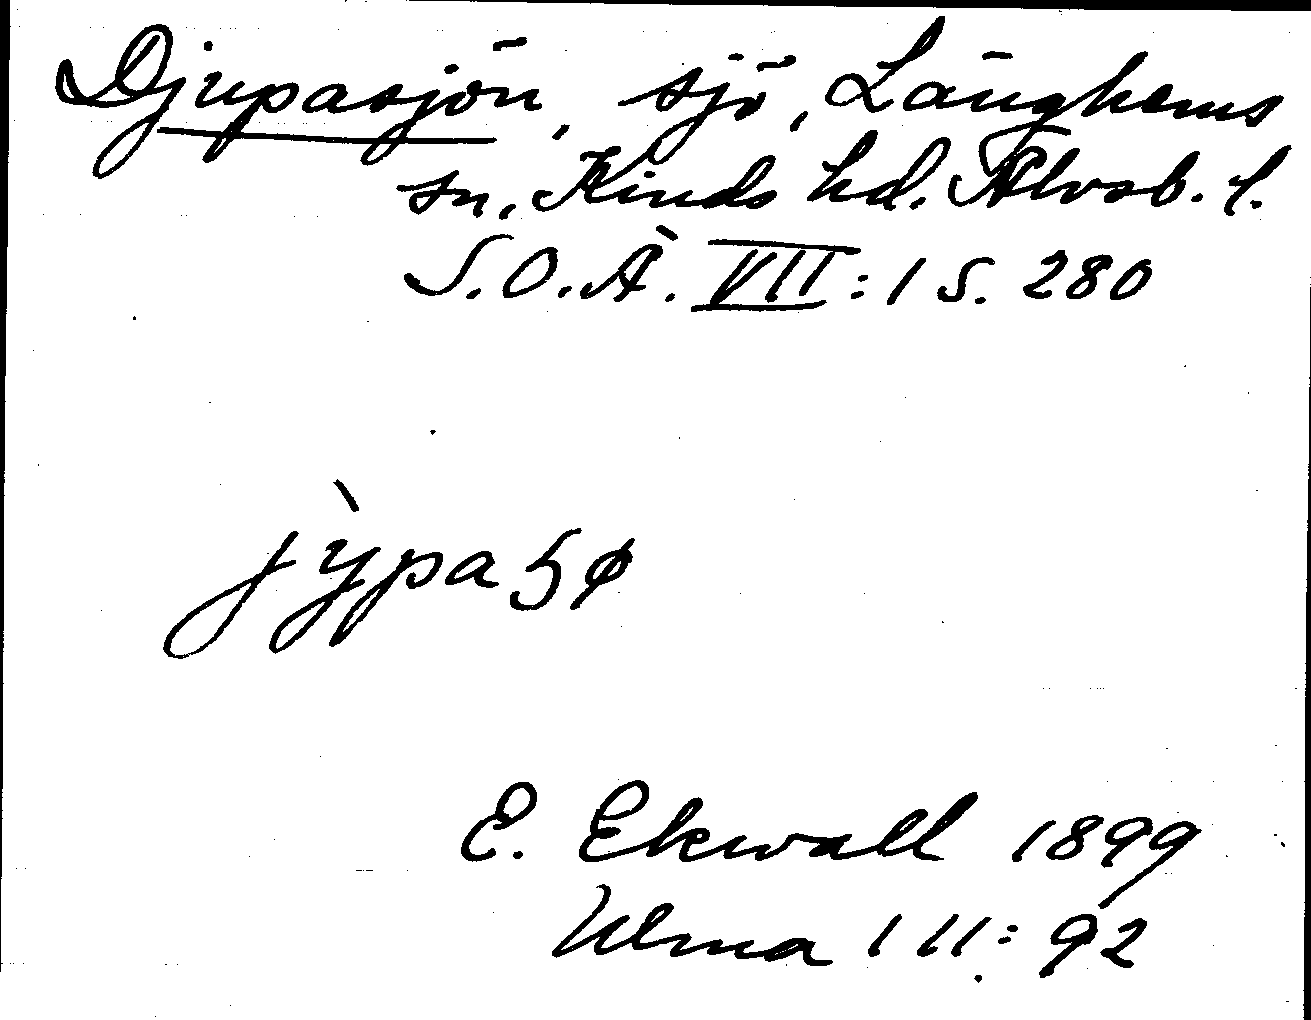 Djupasjön, sjö, Länghems
sn, Kinds hd. Älvsb. l.
S.O.Ä. VII: 1 S. 280
jỳpaꞩø
E. Ekwall 1899
Ulma 111: 92